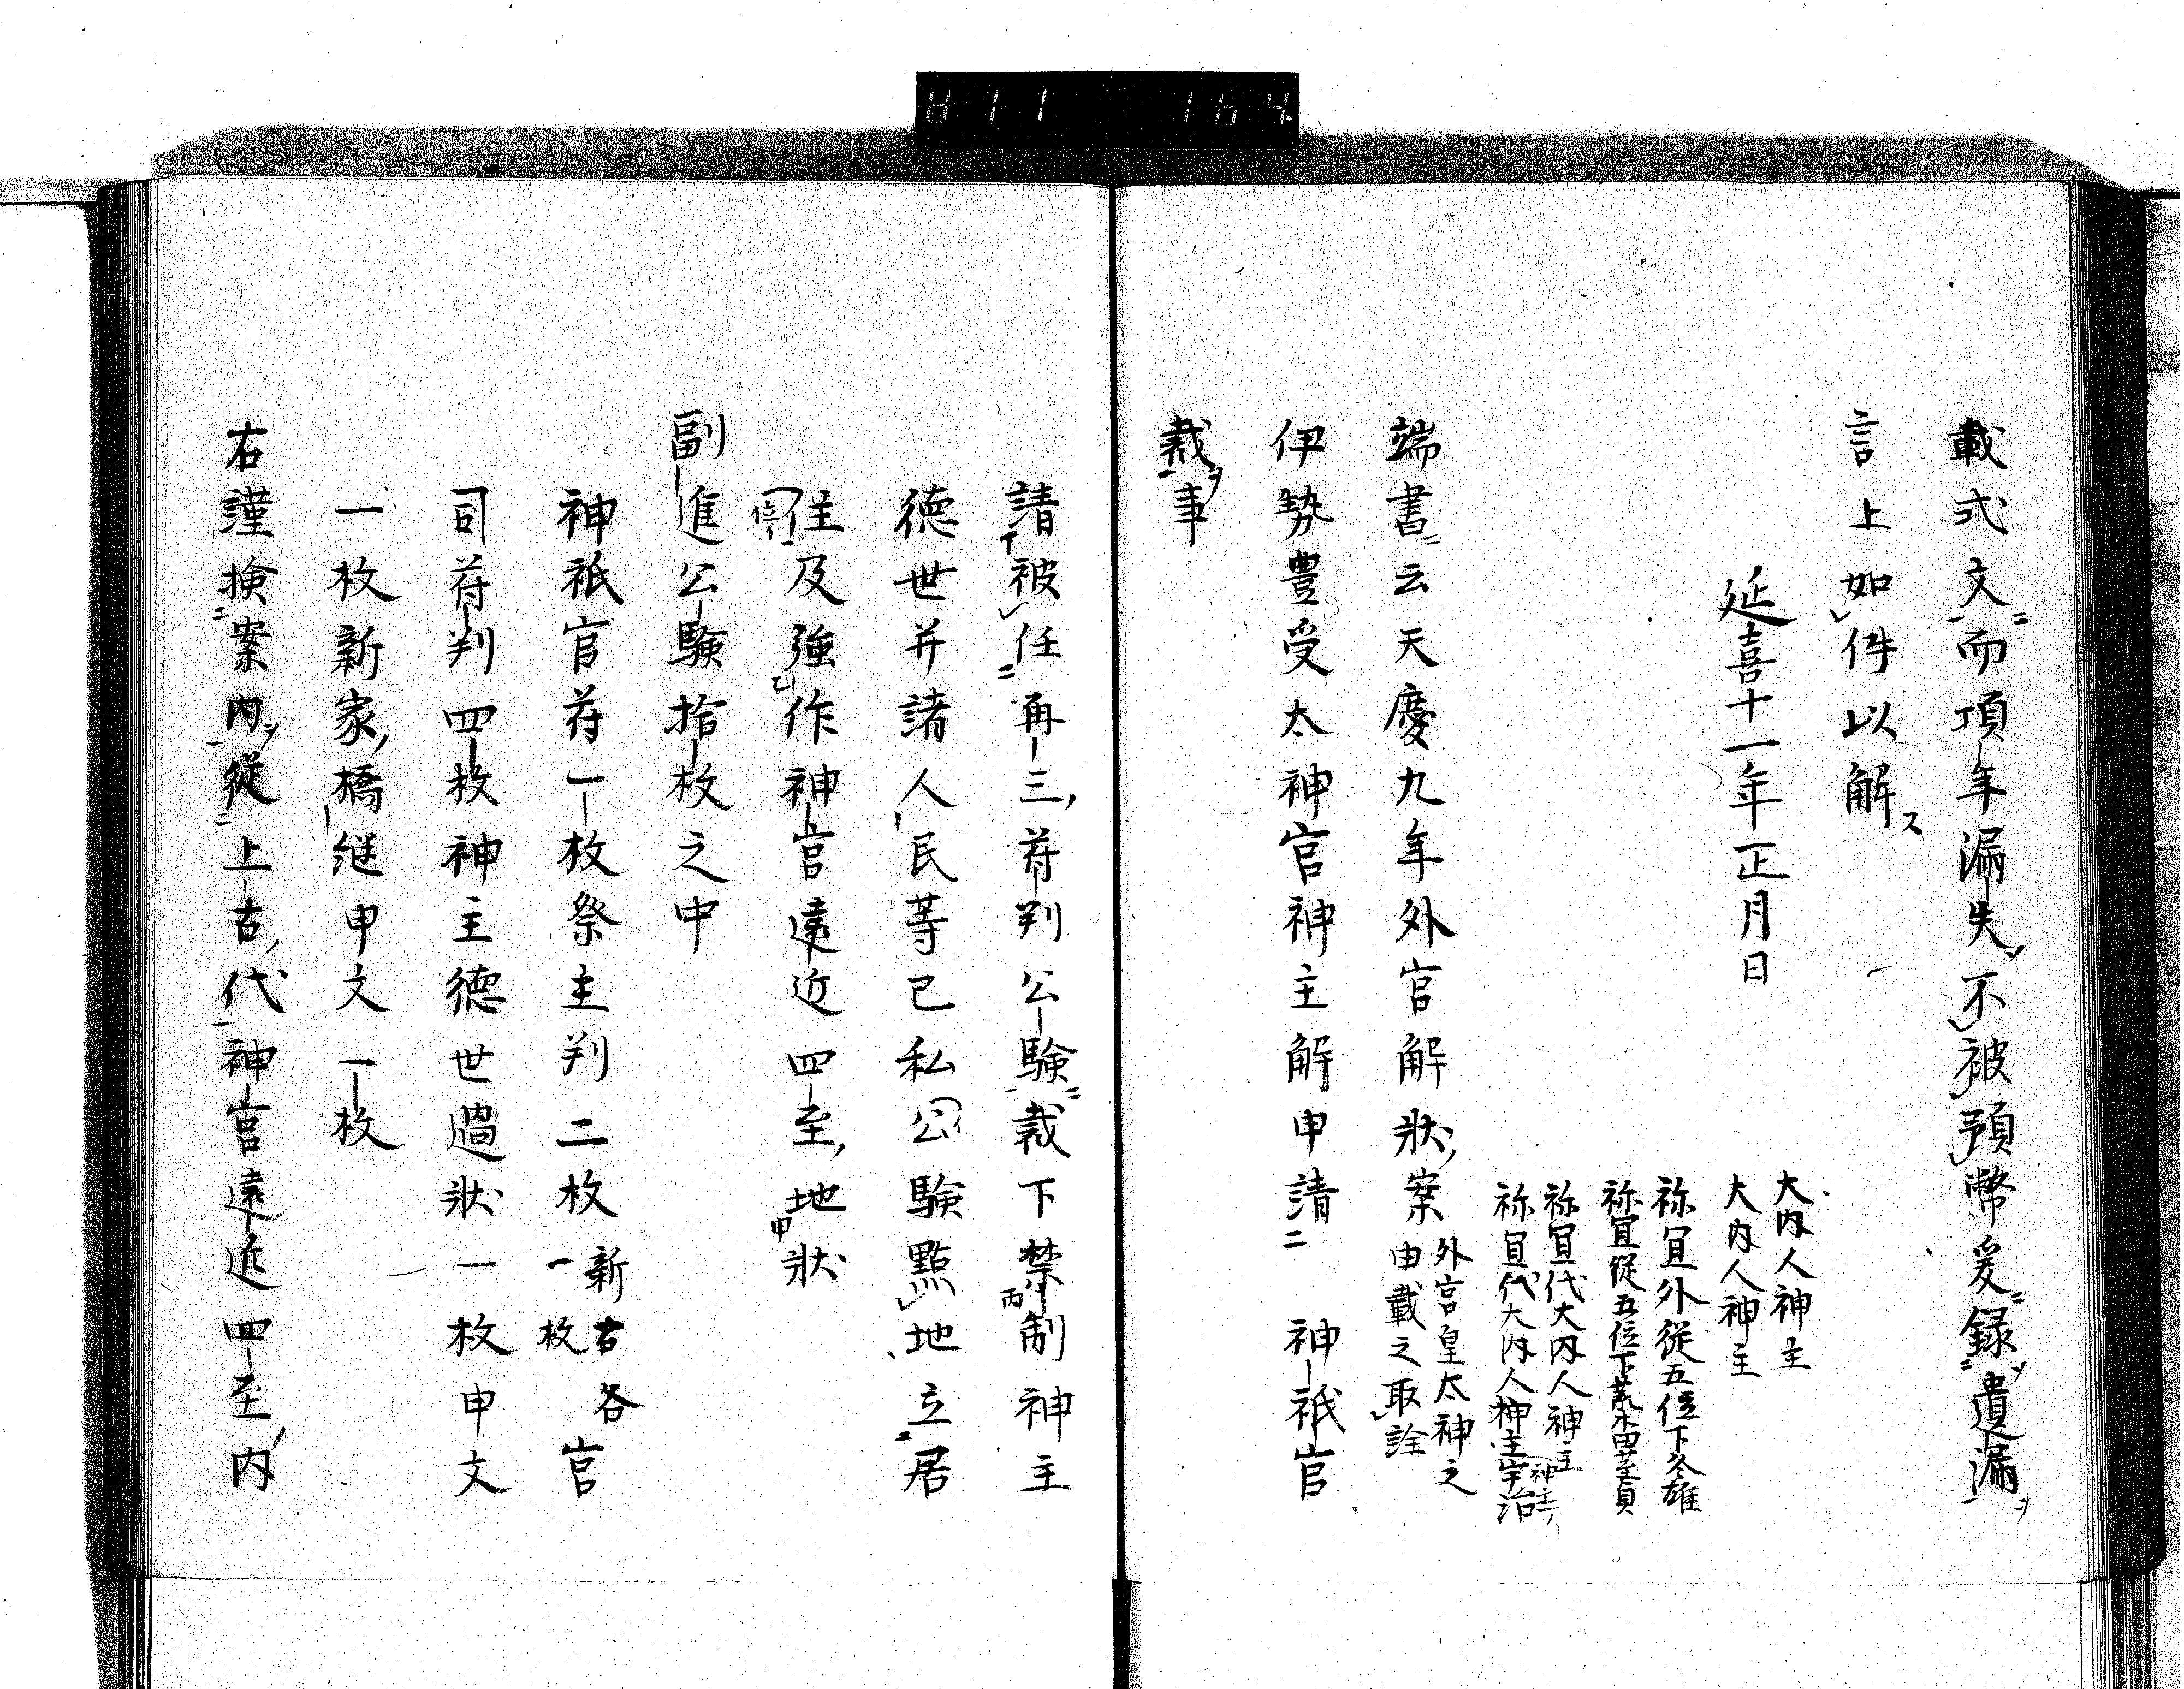 載式文而項年漏失不被預幣爰録遺漏
言上如件以解
延喜十一年正月日
大内人神主
大内人神主
祢冝外従五位下冬雄
祢冝従五位下荒木田茎貞
祢冝代大内人神主
祢冝代大内人神主宇治
神主
端書云天慶九年外宮解状案
外宮皇太神之
由載之取詮
伊勢豊受太神宮神主解申請 神祇官
裁事
請被任再三苻判公験裁下禁制神主
徳世并諸人民等已私公験點地立居
住及強作神宮遠近四至地状
副進公験拾枚之中
神祇官苻一枚祭主判二枚
新古各
一枚
官
司苻判四枚神主徳世過状一枚申文
一枚新家橋継申文一枚
右謹検案内従上古代神宮遠近四至内